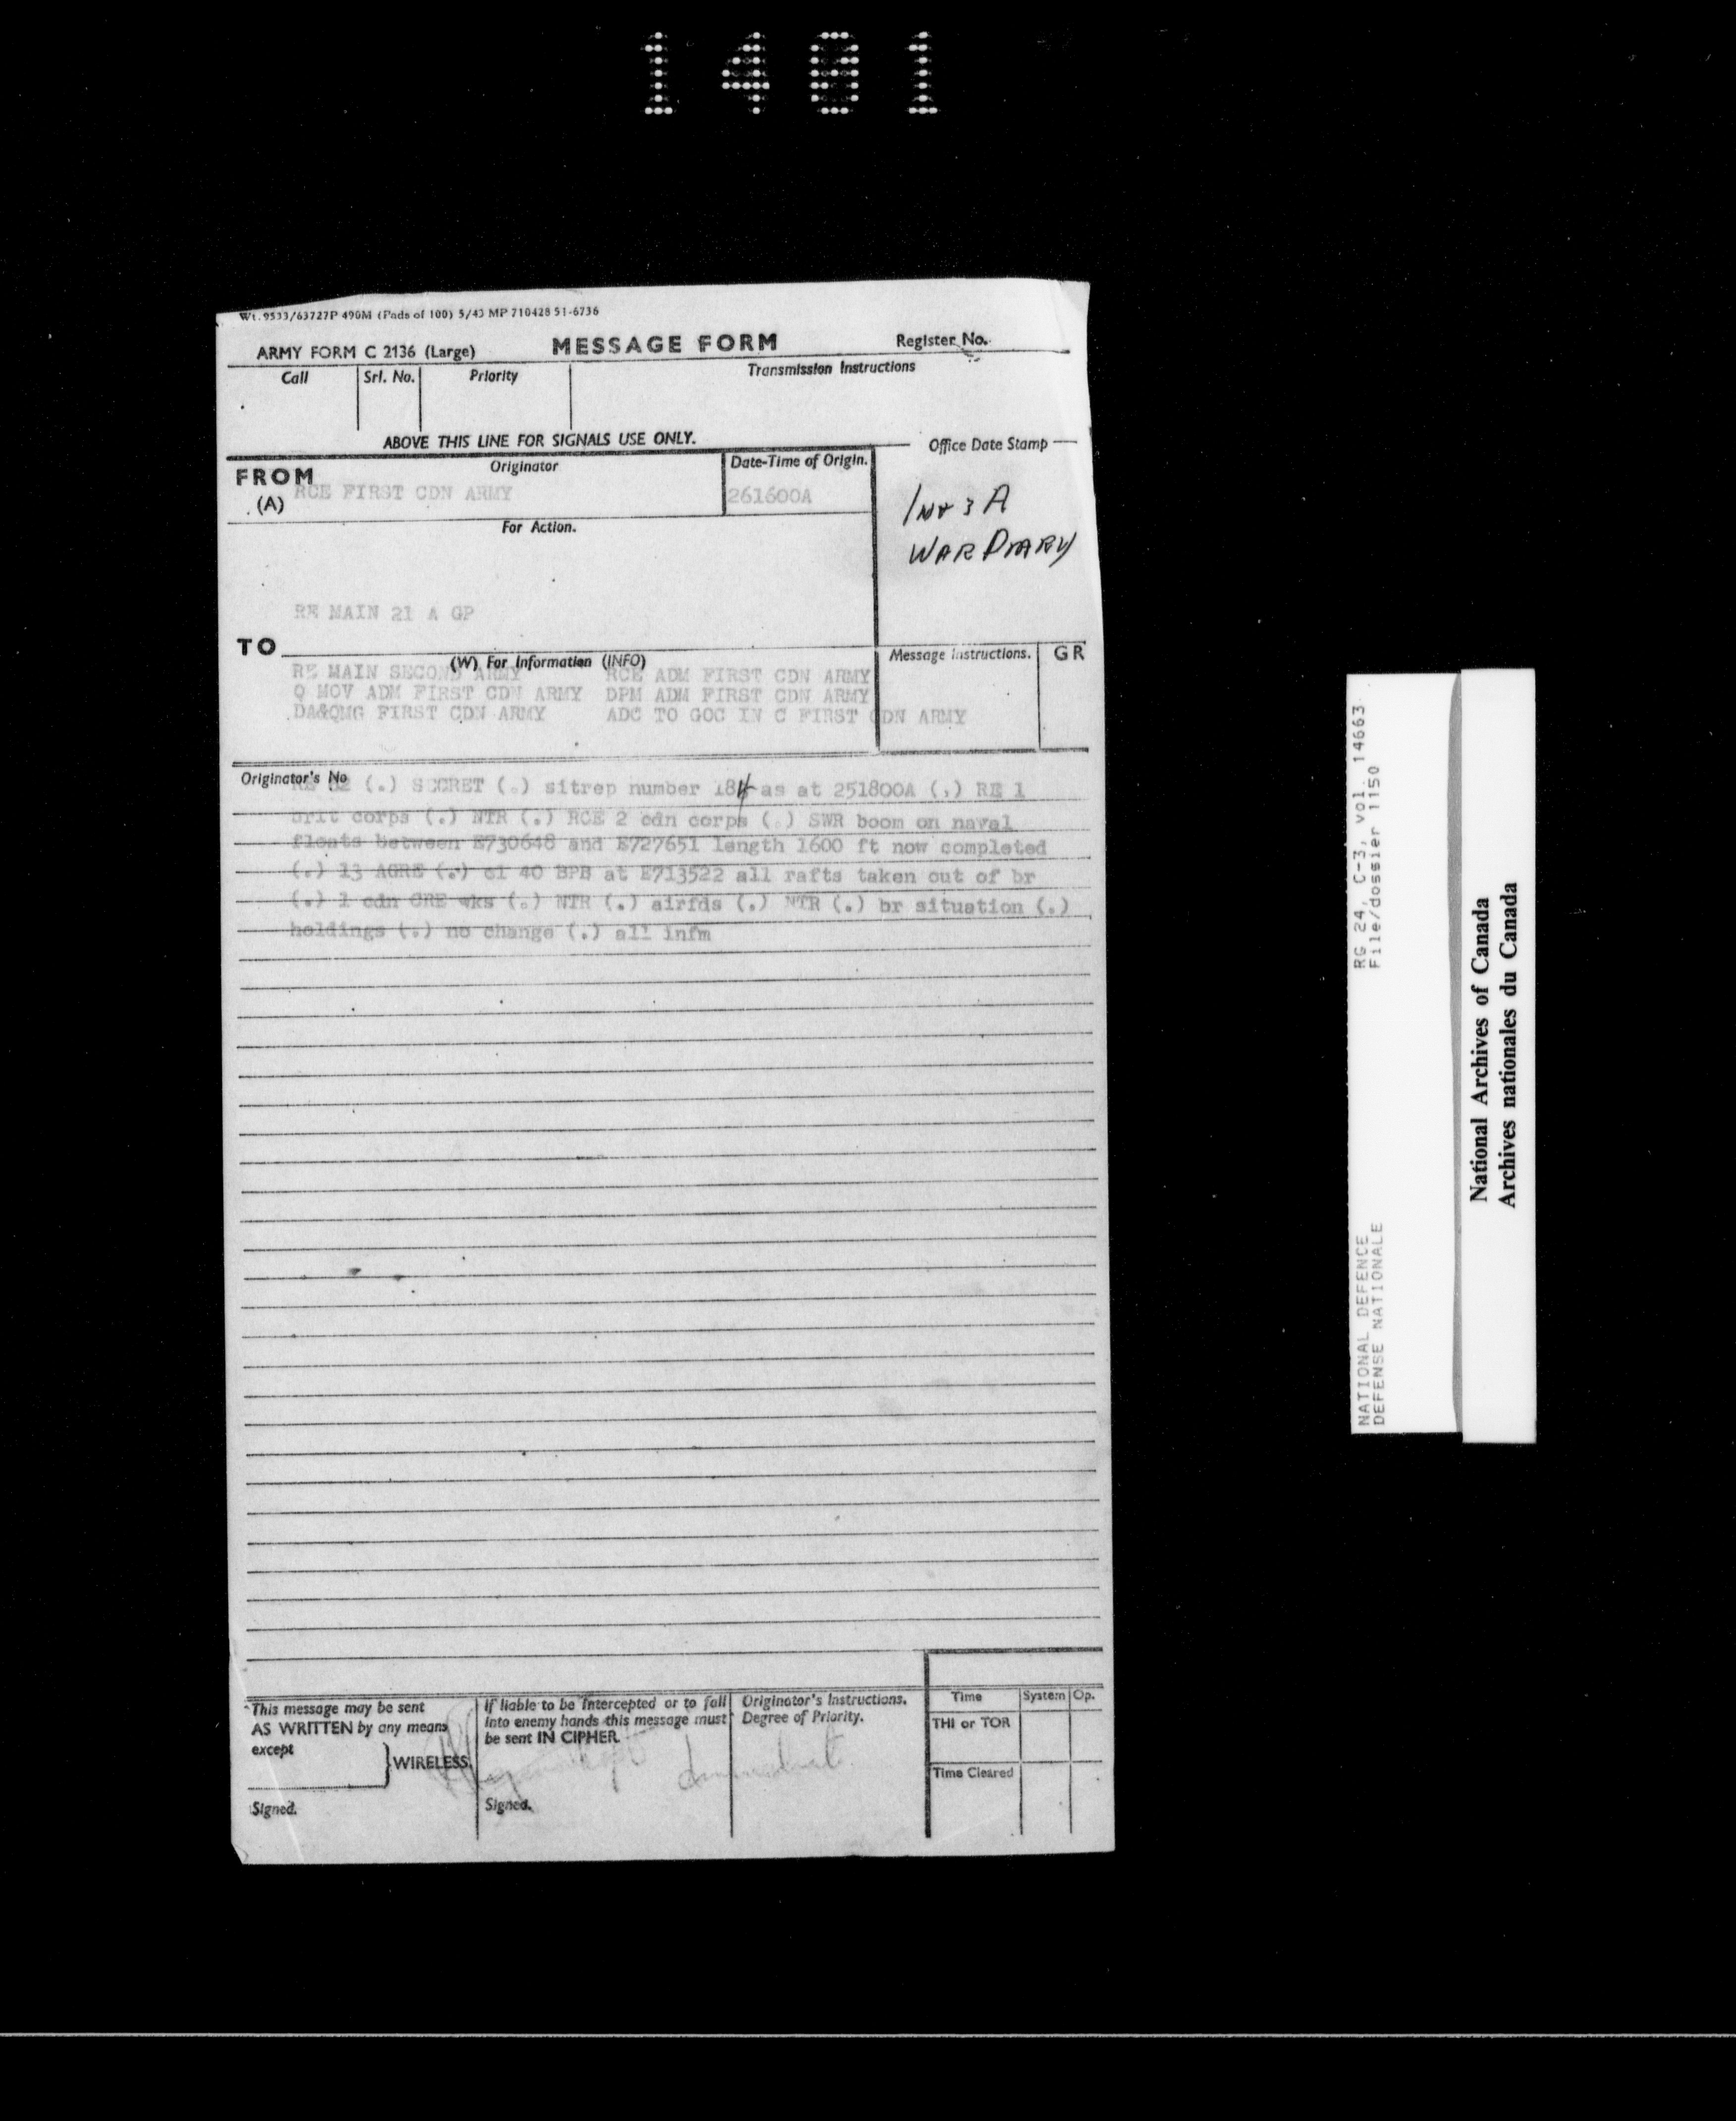 1401
Wt.9533/63727P 490M (Pads of 100) 5/43 MP 710428 51-6736
ARMY FORM C 2136 (Large) MESSAGE FORM Register No.
Call Srl. No. Priority Transmission Instructions
ABOVE THIS LINE FOR SIGNALS USE ONLY.
Office Date Stamp
FROM Originator Date-Time of Origin.
(A) RCE FIRST CDN ARMY 261600A
For Action.
WAR DIARY
RE MAIN 21 A GP
TO
(W) For Information (INFO) Message Instructions. GR
RE MAIN SECOND ARMY RCE ADM FIRST CDN ARMY
Q MOV ADM FIRST CDN ARMY DPM ADM FIRST CDN ARMY
DA&QMG FIRST CDN ARMY ADC TO GOC IN C FIRST CDN ARMY
Originator's No
(.) SECRET (.) sitrep number 184 as at 251800A (.) RE 1
brit corps (.) NTR (.) RCE 2 cdn corps (.) SWR boom on naval
floats between E730648 and E727651 length 1600 ft now completed
(.) 13 AGRE (.) cl 40 BPB at E713522 all rafts taken out of br
(.) 1 cdn CRE wks (.) NTR (.) airfds (.) NTR (.) br situation (.)
holdings (.) no change (.) all infm
This message may be sent
AS WRITTEN by any means
except
WIRELESS.
Signed.
If liable to be intercepted or to fall
into enemy hands this message must
be sent IN CIPHER.
Signed.
Originator's Instructions.
Degree of Priority.
Time System Op.
THI or TOR
Time Cleared
NATIONAL DEFENCE RG 24, C-3, vol. 14663
DEFENSE NATIONALE File/dossier 1150
National Archives of Canada
Archives nationales du Canada